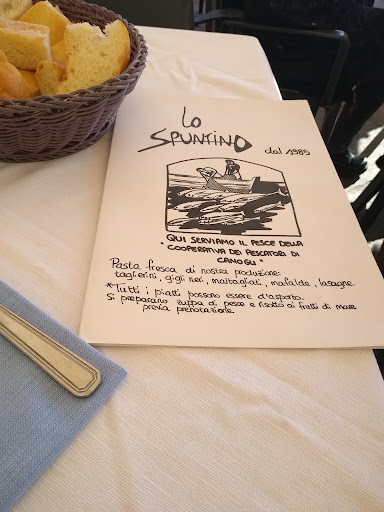 Lo
SPUNTINO
dal 1985
QUI SERVIAMO IL PESCE DELLA
"COOPERATIVA DEI PESCATORI DI
CAMOGLI"
Pasta fresca di nostra produzione:
taglierini, gigli neri, maltagliati, mafalde, lasagne.
*Tutti i piatti possono essere d'asporto.
Si preparano zuppa di pesce e risotto ai frutti di mare
previa prenotazione